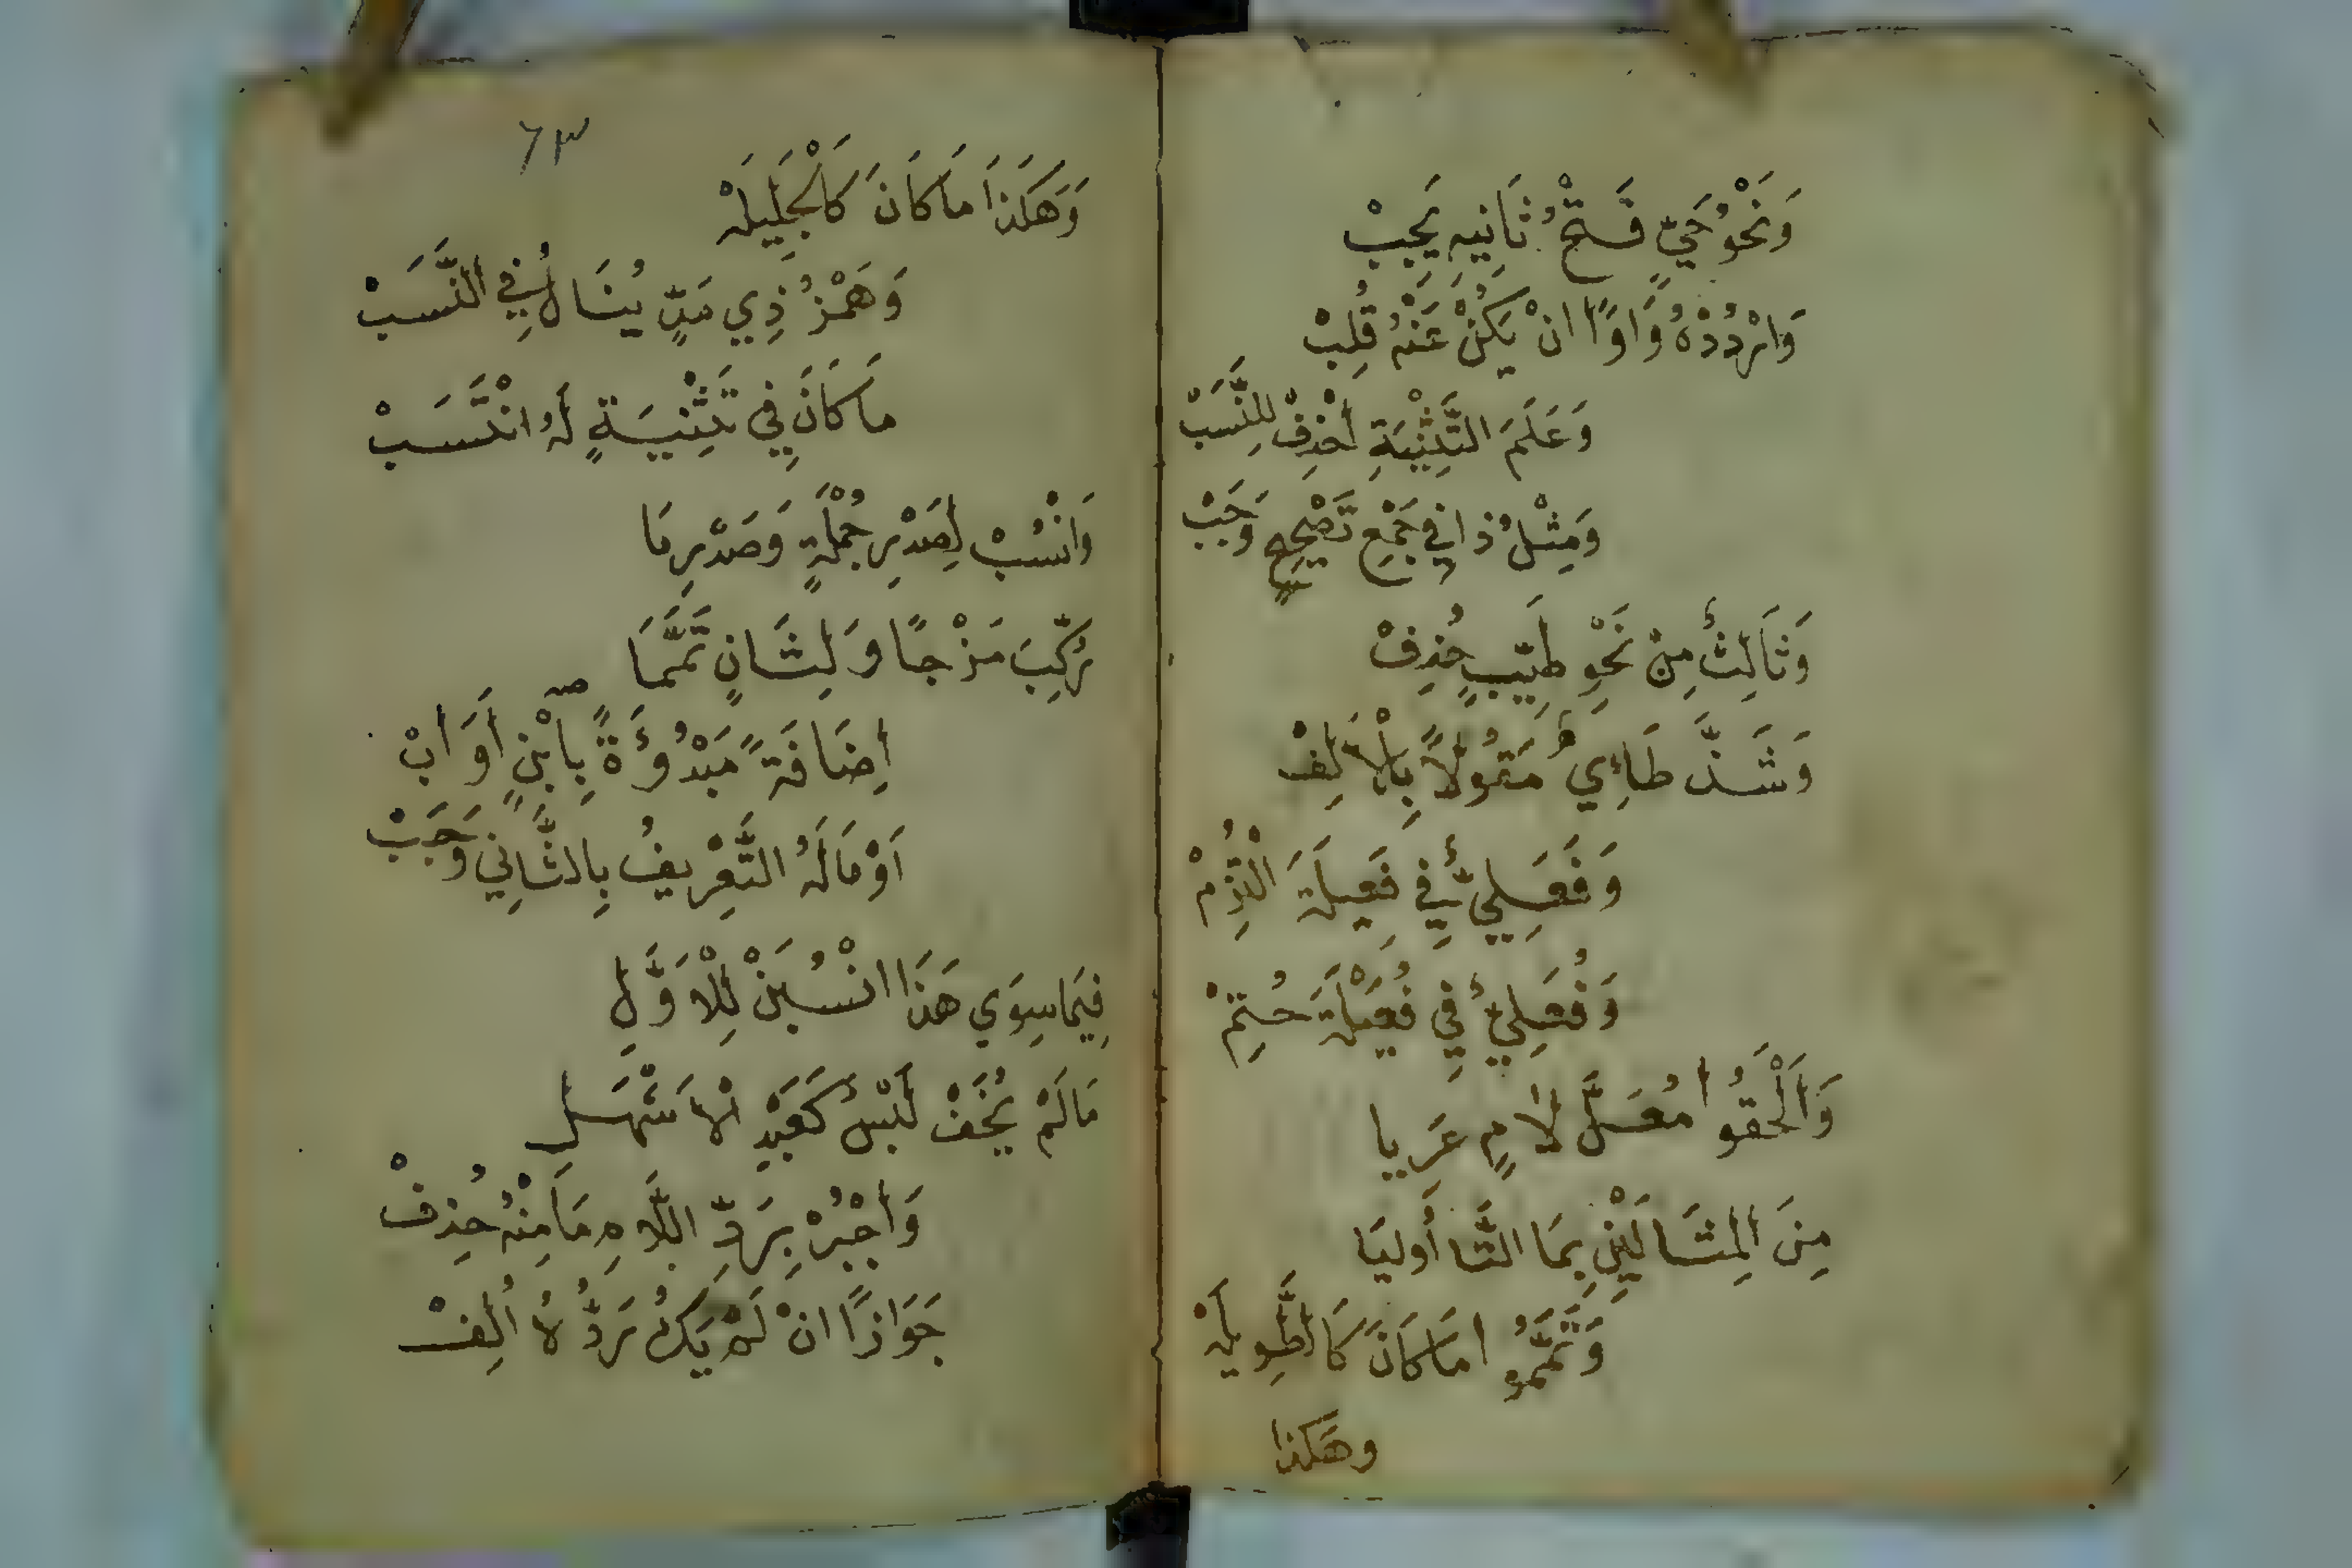 وَنَحْوُ حَيٍّ فَتْحُ ثَانِيهِ يَجِبْ
وَارْدُدْهُ وَاوًا انْ يَكُنْ عَنْهُ قُلِبْ
وَعَلَمَ التَّثْنِيَةِ احْذِفْ لِلنَّسَبْ
وَمِثْلُ ذَا فِي جَمْعِ تَصْحِيحٍ وَجَبْ
وَثَالِثٌ مِنْ نَحْوِ طَيِّبٍ حُذِفْ
وَشَذَّ طَاءِيٌ مَقُولاً بِالْاَلِفْ
وَفَعَلِيٌّ فِي فَعِيلَةَ الْتُزِمْ
وَفُعَلِيٌّ فِي فُعَيْلَةَ حُتِمْ
وَاَلْحَقُوا مُعَلَّ لاَمٍ عَرِيا
مِنَ الْمِثَالَيْنِ بِمَا التَّا أُولِيَا
وَتَمَّمُوا مَا كَانَ كَالطَّوِيلَهْ
وهَكذا
٦٣
وَهَكَذَا مَا كَانَ كَالْجَلِيلَهْ
وَهَمْزُ ذِي مَدٍّ يُنَالُ فِي النَّسَبْ
مَا كَانَ فِي تَثْنِيَةٍ لَهُ انْتَسَبْ
وَانْسُبْ لِصَدْرِ جُمْلَةٍ وَصَدْرِ مَا
رُكِّبَ مَزْجًا وَلِثَانٍ تَمَّمَا
اِضَافَةً مَبْدُوْءَةً بِابْنٍ اَوَ ابْ
اَوْ مَا لَهُ التَّعْرِيفُ بِالثَّانِي وَجَبْ
فِيمَا سِوَي هَذَا انْسُبَنْ لِلْاَوَّلِ
مَا لَمْ يُخَفْ لَبْسٌ كَعَبْدِ الْاَشْهَلِ
وَاجْبُرْ بِرَدِّ اللَّامِ مَا مِنْهُ حُذِفْ
جَوَازًا انْ لَمْ يَكُ رَدُّهُ أُلِفْ